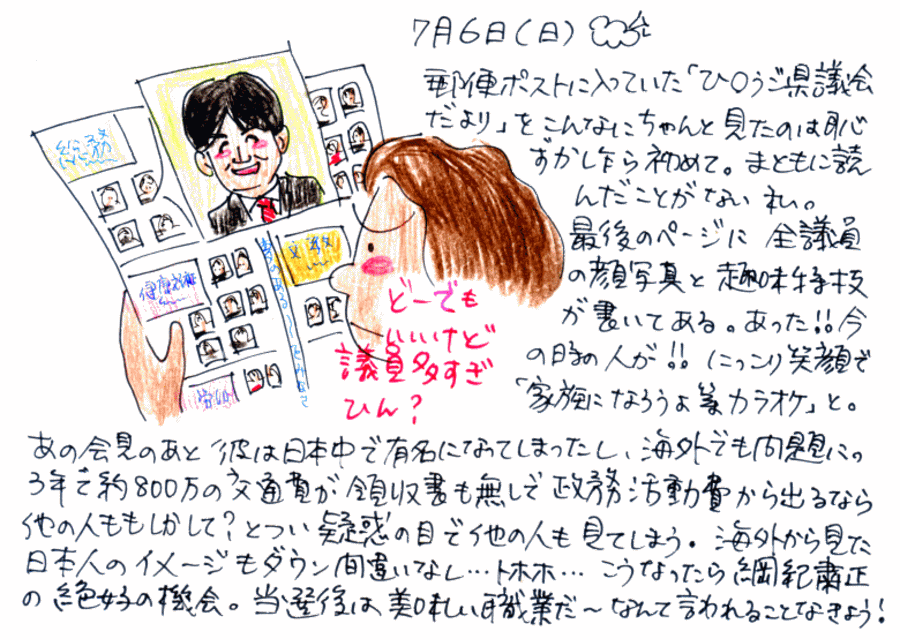 7月6日(日)
郵便ポストに入っていた「ひ〇うご県議会
だより」をこんなにちゃんと見たのは恥
ずかし乍ら初めて。まともに読
んだことがないわ。
最後のページに全議員
の顔写真と趣味特技
が書いてある。あった!!今
の時の人が!!にっこり笑顔で
「家族になろうよ カラオケ」と。
総務
健康福祉
文教
どーでも
いいけど
議員多すぎ
ひん?
あの会見のあと彼は日本中で有名になってしまったし、海外でも問題にっ
3年で約800万の交通費が領収書も無しで政務活動費から出るなら
他の人ももしかして?とつい疑惑の目で他の人も見てしまう。海外から見た
日本人のイメージもダウン間違いなし…トホホ…こうなったら綱紀粛正
の絶好の機会。当選後は美味しい職業だ~なんて言われることなきよう!